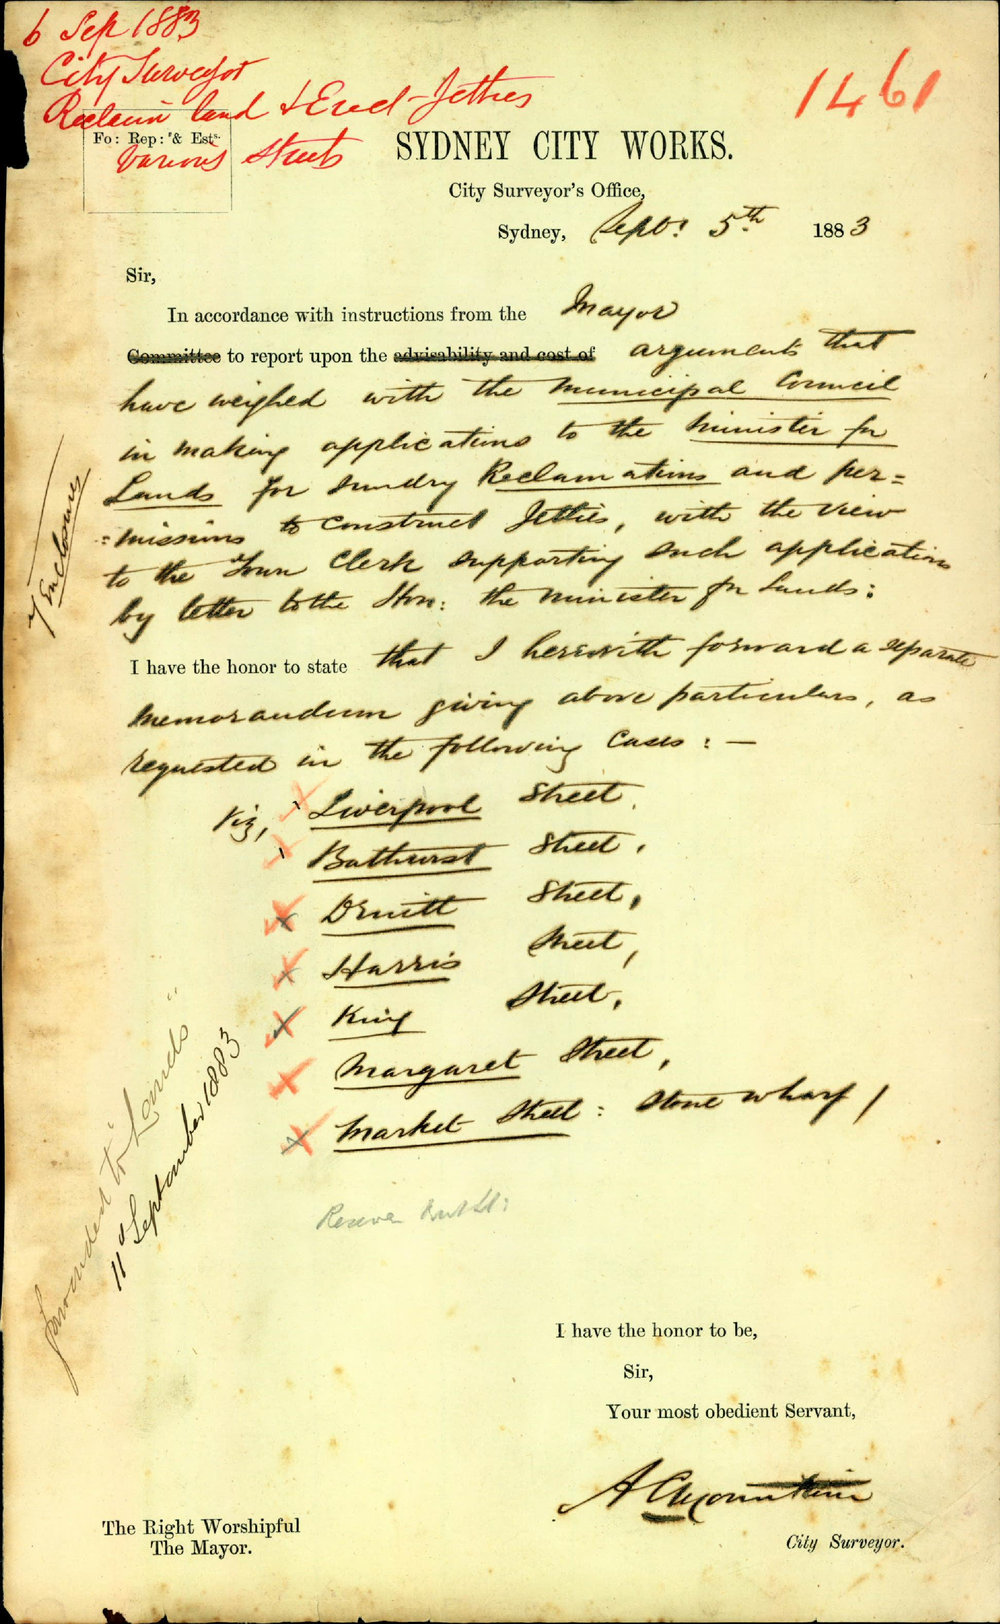 6 Sep 1883
City Surveyor
Reclaim land & Erect Jetties
Various Streets
1461
Fo: Rep: & Ests.
SYDNEY CITY WORKS.
City Surveyor's Office,
Sydney, Sept. 5th 1883
Sir,
In accordance with instructions from the Mayor
Committee to report upon the advisability and cost of arguments that
have weighed with the Municipal Council
in making applications to the Minister for
Lands for sundry Reclamations and per=
=missions to construct Jetties, with the view
to the Town Clerk supporting such application
by letter to the Hon: the Minister for Lands:
7 Enclosures
I have the honor to state that I herewith forward a separate
memorandum giving above particulars, as
requested in the following cases: —
Viz, Liverpool Street.
Bathurst Street,
Druitt Street,
Harris Street,
King Street,
Margaret Street,
Market Street: Stone wharf /
forwarded to "Lands"
11th September 1883
I have the honor to be,
Sir,
Your most obedient Servant,
A C Mountain
City Surveyor.
The Right Worshipful
The Mayor.